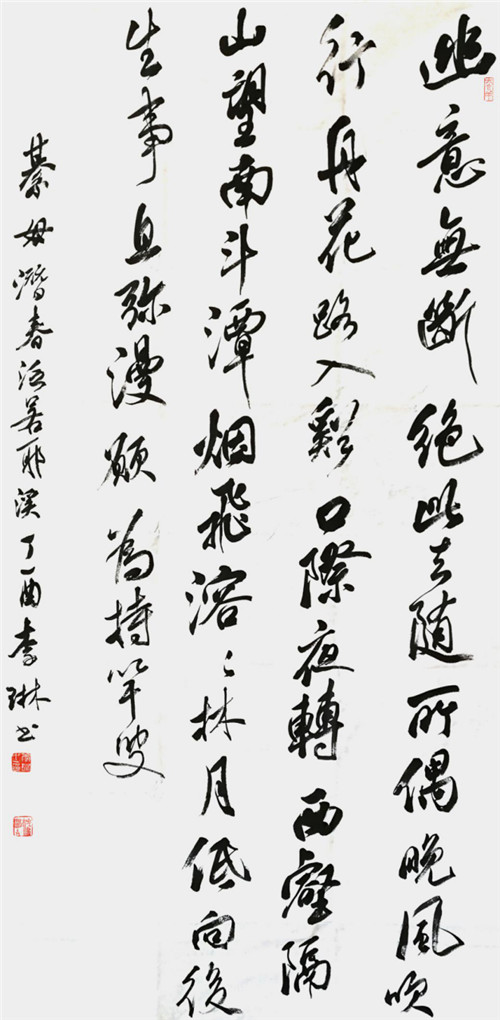 幽意無斷絕此去随所偶晚風吹
行舟花路入谿口際夜轉西壑隔
山望南斗潭烟飛溶〻林月低向後
生事且弥漫願為持竿叟
綦毋潛春泛若耶溪丁酉李琳书